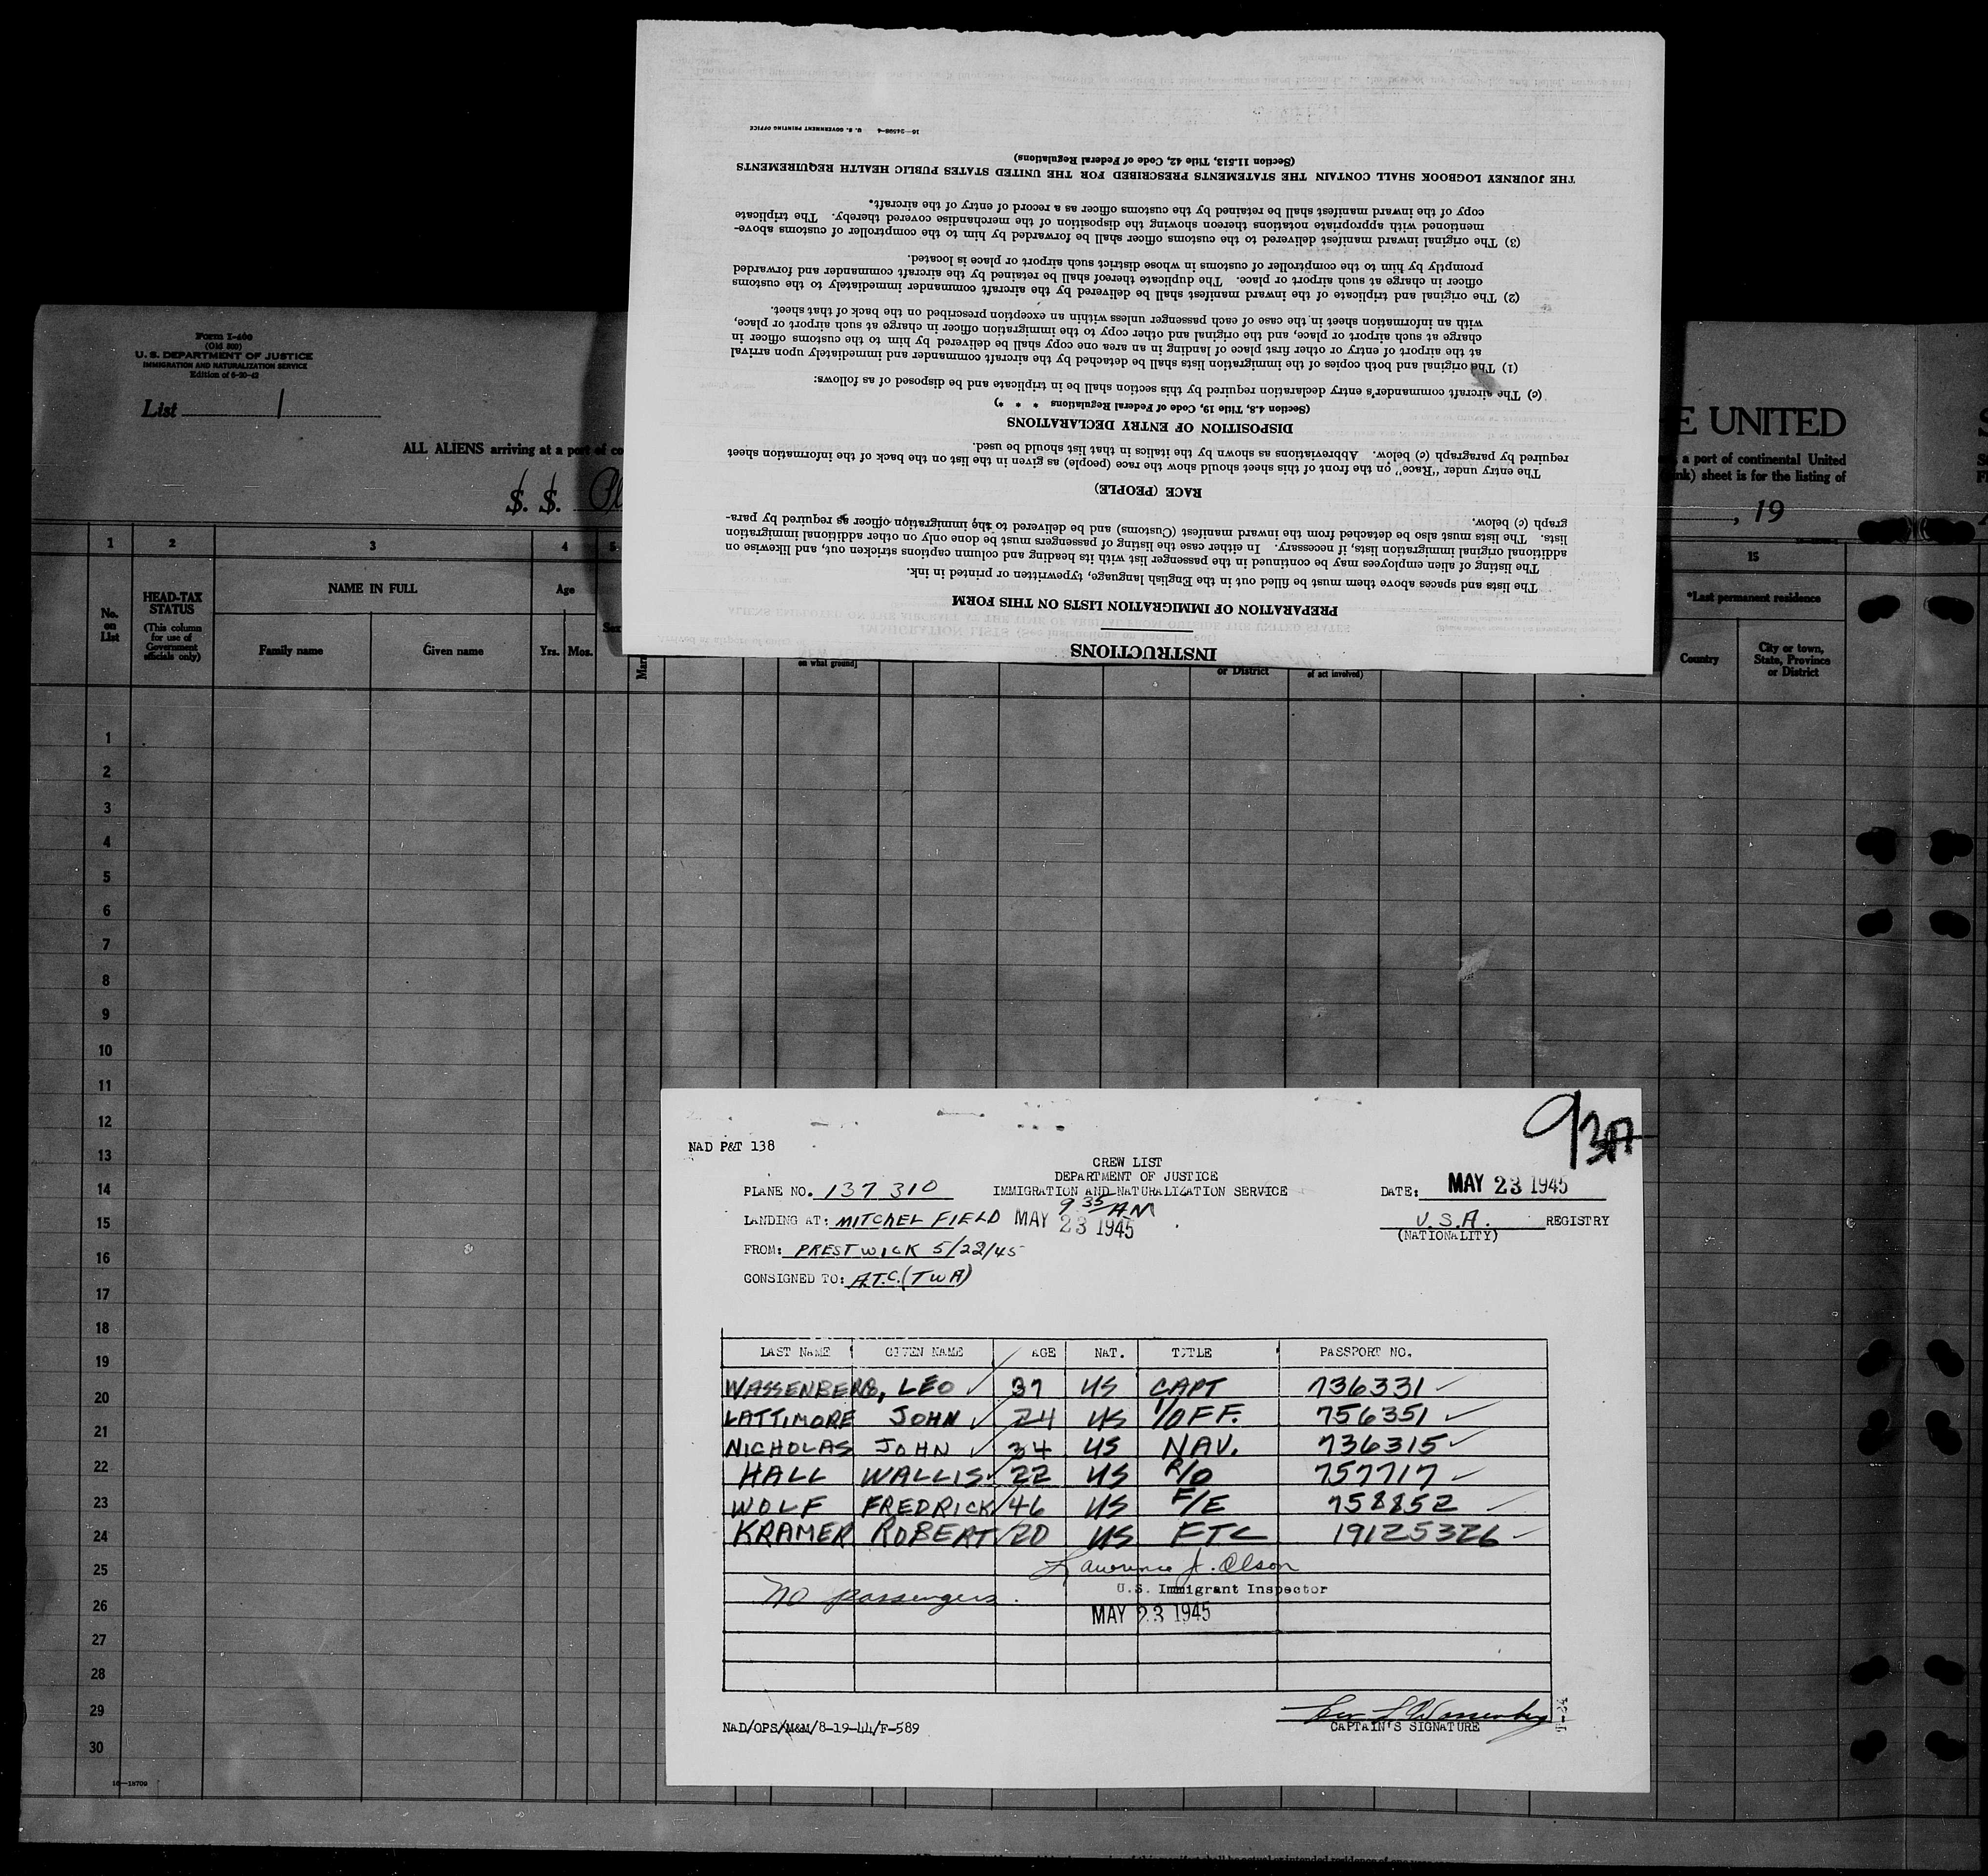 16—24598-4 U. S. GOVERNMENT PRINTING OFFICE
THE JOURNEY LOGBOOK SHALL CONTAIN THE STATEMENTS PRESCRIBED FOR THE UNITED STATES PUBLIC HEALTH REQUIREMENTS
(Section 11.513, Title 42, Code of Federal Regulations)
INSTRUCTIONS
PREPARATION OF IMMIGRATION LISTS ON THIS FORM
The lists and spaces above them must be filled out in the English language, typewritten or printed in ink.
The listing of alien employees may be continued in the passenger list with its heading and column captions stricken out, and likewise on
additional original immigration lists, if necessary. In either case the listing of passengers must be done only on other additional immigration
lists. The lists must also be detached from the inward manifest (Customs) and be delivered to the immigration officer as required by para-
graph (c) below.
RACE (PEOPLE)
The entry under "Race" on the front of this sheet should show the race (people) as given in the list on the back of the information sheet
required by paragraph (c) below. Abbreviations as shown by the italics in that list should be used.
DISPOSITION OF ENTRY DECLARATIONS
(Section 4.8, Title 19, Code of Federal Regulations * * *)
(c) The aircraft commander's entry declaration required by this section shall be in triplicate and be disposed of as follows:
(1) The original and both copies of the immigration lists shall be detached by the aircraft commander and immediately upon arrival
at the airport of entry or other first place of landing in an area one copy shall be delivered by him to the customs officer in
charge at such airport or place, and the original and other copy to the immigration officer in charge at such airport or place,
with an information sheet in the case of each passenger unless within an exception prescribed on the back of that sheet.
(2) The original and triplicate of the inward manifest shall be delivered by the aircraft commander immediately to the customs
officer in charge at such airport or place. The duplicate thereof shall be retained by the aircraft commander and forwarded
promptly by him to the comptroller of customs in whose district such airport or place is located.
(3) The original inward manifest delivered to the customs officer shall be forwarded by him to the comptroller of customs above-
mentioned with appropriate notations thereon showing the disposition of the merchandise covered thereby. The triplicate
copy of the inward manifest shall be retained by the customs officer as a record of entry of the aircraft.
Form I-400
(Old 500)
U. S. DEPARTMENT OF JUSTICE
IMMIGRATION AND NATURALIZATION SERVICE
Edition of 6-20-42
List 1
E UNITED
ALL ALIENS arriving at a port of co
a port of continental United
nk) sheet is for the listing of
S. S. Pl
, 19
1 2 3 4 5 15
No. on List
HEAD-TAX STATUS
(This column for use of Government officials only)
NAME IN FULL
Family name Given name
Age
Yrs. Mos.
Sex
on what ground]
or District
of act involved)
*Last permanent residence
Country
City or town, State, Province or District
1
2
3
4
5
6
7
8
9
10
11
12
13
14
15
16
17
18
19
20
21
22
23
24
25
26
27
28
29
30
16—18709
93A
NAD P&T 138
CREW LIST
DEPARTMENT OF JUSTICE
IMMIGRATION AND NATURALIZATION SERVICE
PLANE NO. 137 310
DATE: MAY 23 1945
LANDING AT: MITCHEL FIELD MAY 23 1945 9 35 AM
U.S.A. REGISTRY
(NATIONALITY)
FROM: PRESTWICK 5/22/45
CONSIGNED TO: A.T.C. (TWA)
LAST NAME GIVEN NAME AGE NAT. TITLE PASSPORT NO.
WASSENBERG, LEO 37 US CAPT 736331
LATTIMORE JOHN 24 US 1/OFF. 756351
NICHOLAS JOHN 34 US NAV. 736315
HALL WALLIS 22 US R/O 757717
WOLF FREDRICK 46 US F/E 758852
KRAMER ROBERT 20 US FTC 19125326
Lawrence J. Olson
U.S. Immigrant Inspector
No passengers.
MAY 23 1945
Leo L Wassenberg
CAPTAIN'S SIGNATURE
NAD/OPS/M&M/8-19-44/F-589